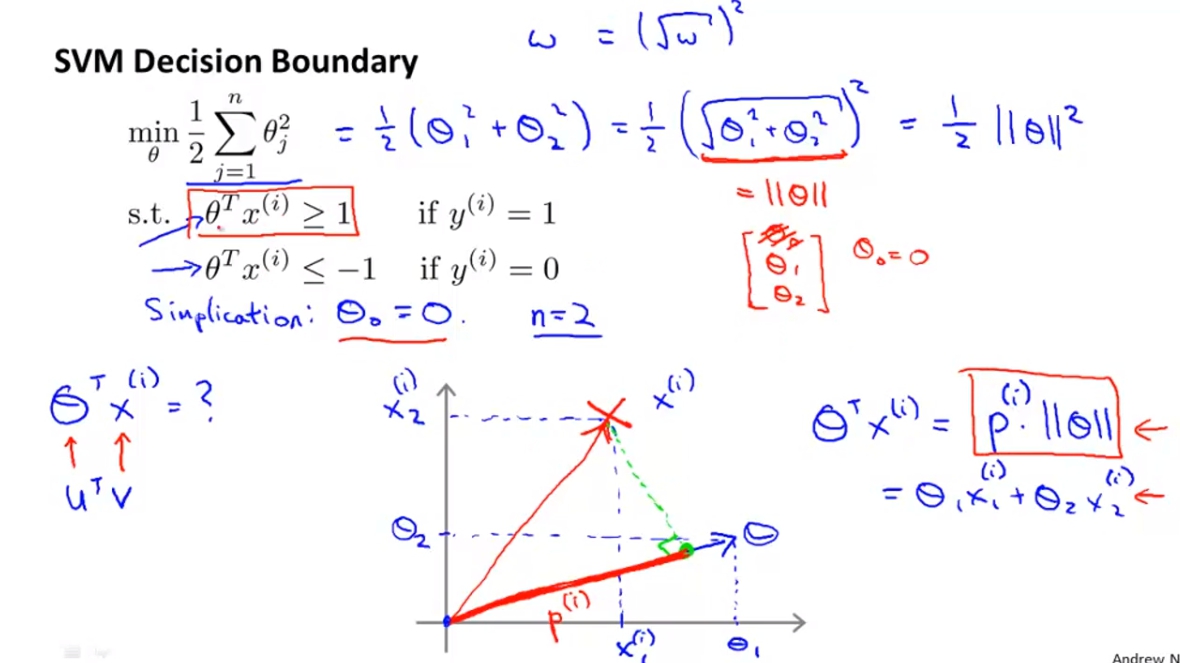 ω = (√ω)²
SVM Decision Boundary
min_θ 1/2 ∑_{j=1}^{n} θ_j² = 1/2 (θ₁² + θ₂²) = 1/2 (√(θ₁² + θ₂²))² = 1/2 ||θ||²
= ||θ||
s.t. θᵀx⁽ⁱ⁾ ≥ 1 if y⁽ⁱ⁾ = 1
θᵀx⁽ⁱ⁾ ≤ −1 if y⁽ⁱ⁾ = 0
[θ₁ θ₂] θ₀ = 0
Simplication: θ₀ = 0. n = 2
θᵀx⁽ⁱ⁾ = ?
uᵀ v
x₂⁽ⁱ⁾
x⁽ⁱ⁾
θ₂
θ
p⁽ⁱ⁾
x₁⁽ⁱ⁾
θ₁
θᵀx⁽ⁱ⁾ = p⁽ⁱ⁾ · ||θ|| ←
= θ₁x₁⁽ⁱ⁾ + θ₂x₂⁽ⁱ⁾ ←
Andrew N